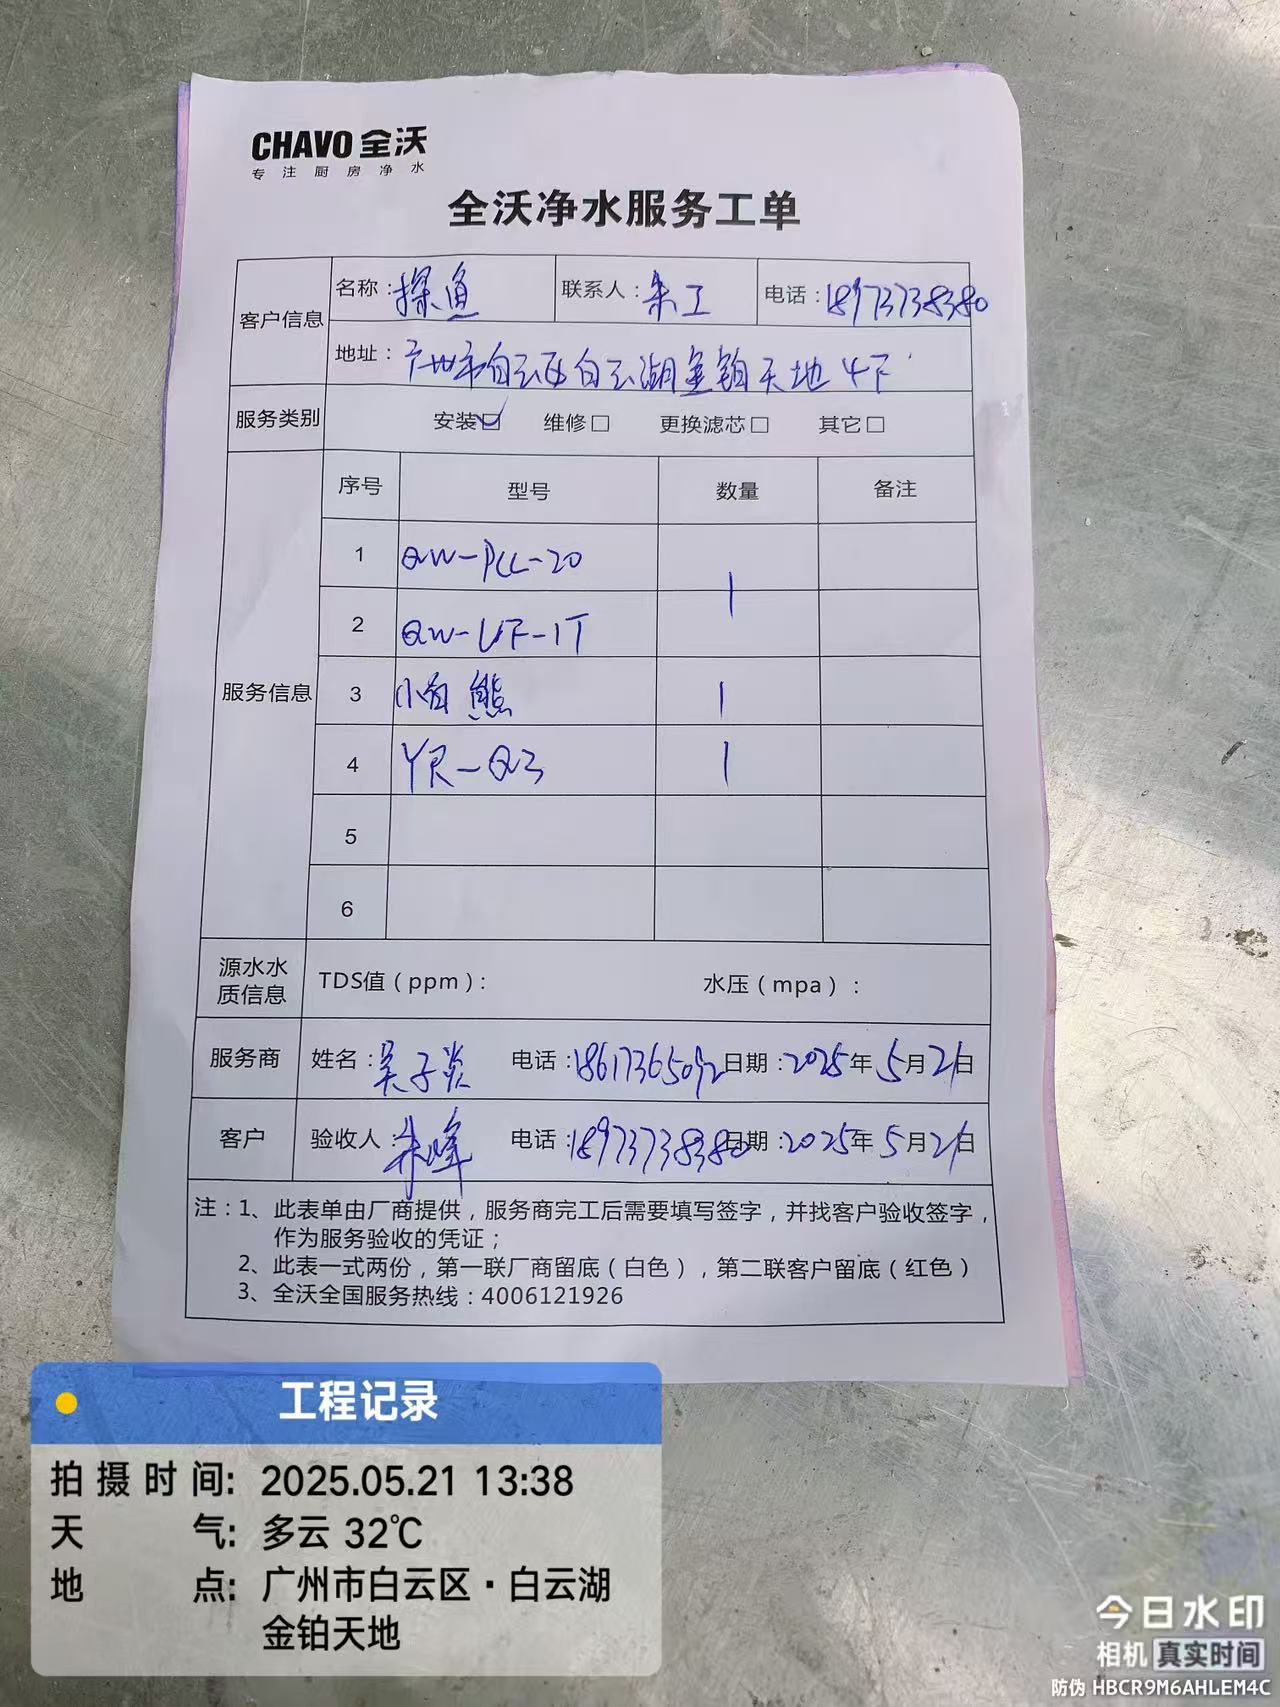 CHAVO 全沃
专注厨房净水
全沃净水服务工单
客户信息 名称：探鱼 联系人：朱工 电话：18973738380
地址：广州市白云区白云湖金铂天地4F
服务类别 安装☑ 维修□ 更换滤芯□ 其它□
服务信息 序号 型号 数量 备注
1 QW-PCC-20
1
2 QW-UF-1T
3 小白熊 1
4 YR-Q3 1
5
6
源水水质信息 TDS值（ppm）： 水压（mpa）：
服务商 姓名：吴子炎 电话：18617365092 日期：2025年5月21日
客户 验收人：朱峰 电话：18973738380 日期：2025年5月21日
注：1、此表单由厂商提供，服务商完工后需要填写签字，并找客户验收签字，
作为服务验收的凭证；
2、此表一式两份，第一联厂商留底（白色），第二联客户留底（红色）
3、全沃全国服务热线：4006121926
工程记录
拍摄时间: 2025.05.21 13:38
天气: 多云 32℃
地点: 广州市白云区·白云湖
金铂天地
今日水印
相机 真实时间
防伪 HBCR9M6AHLEM4C